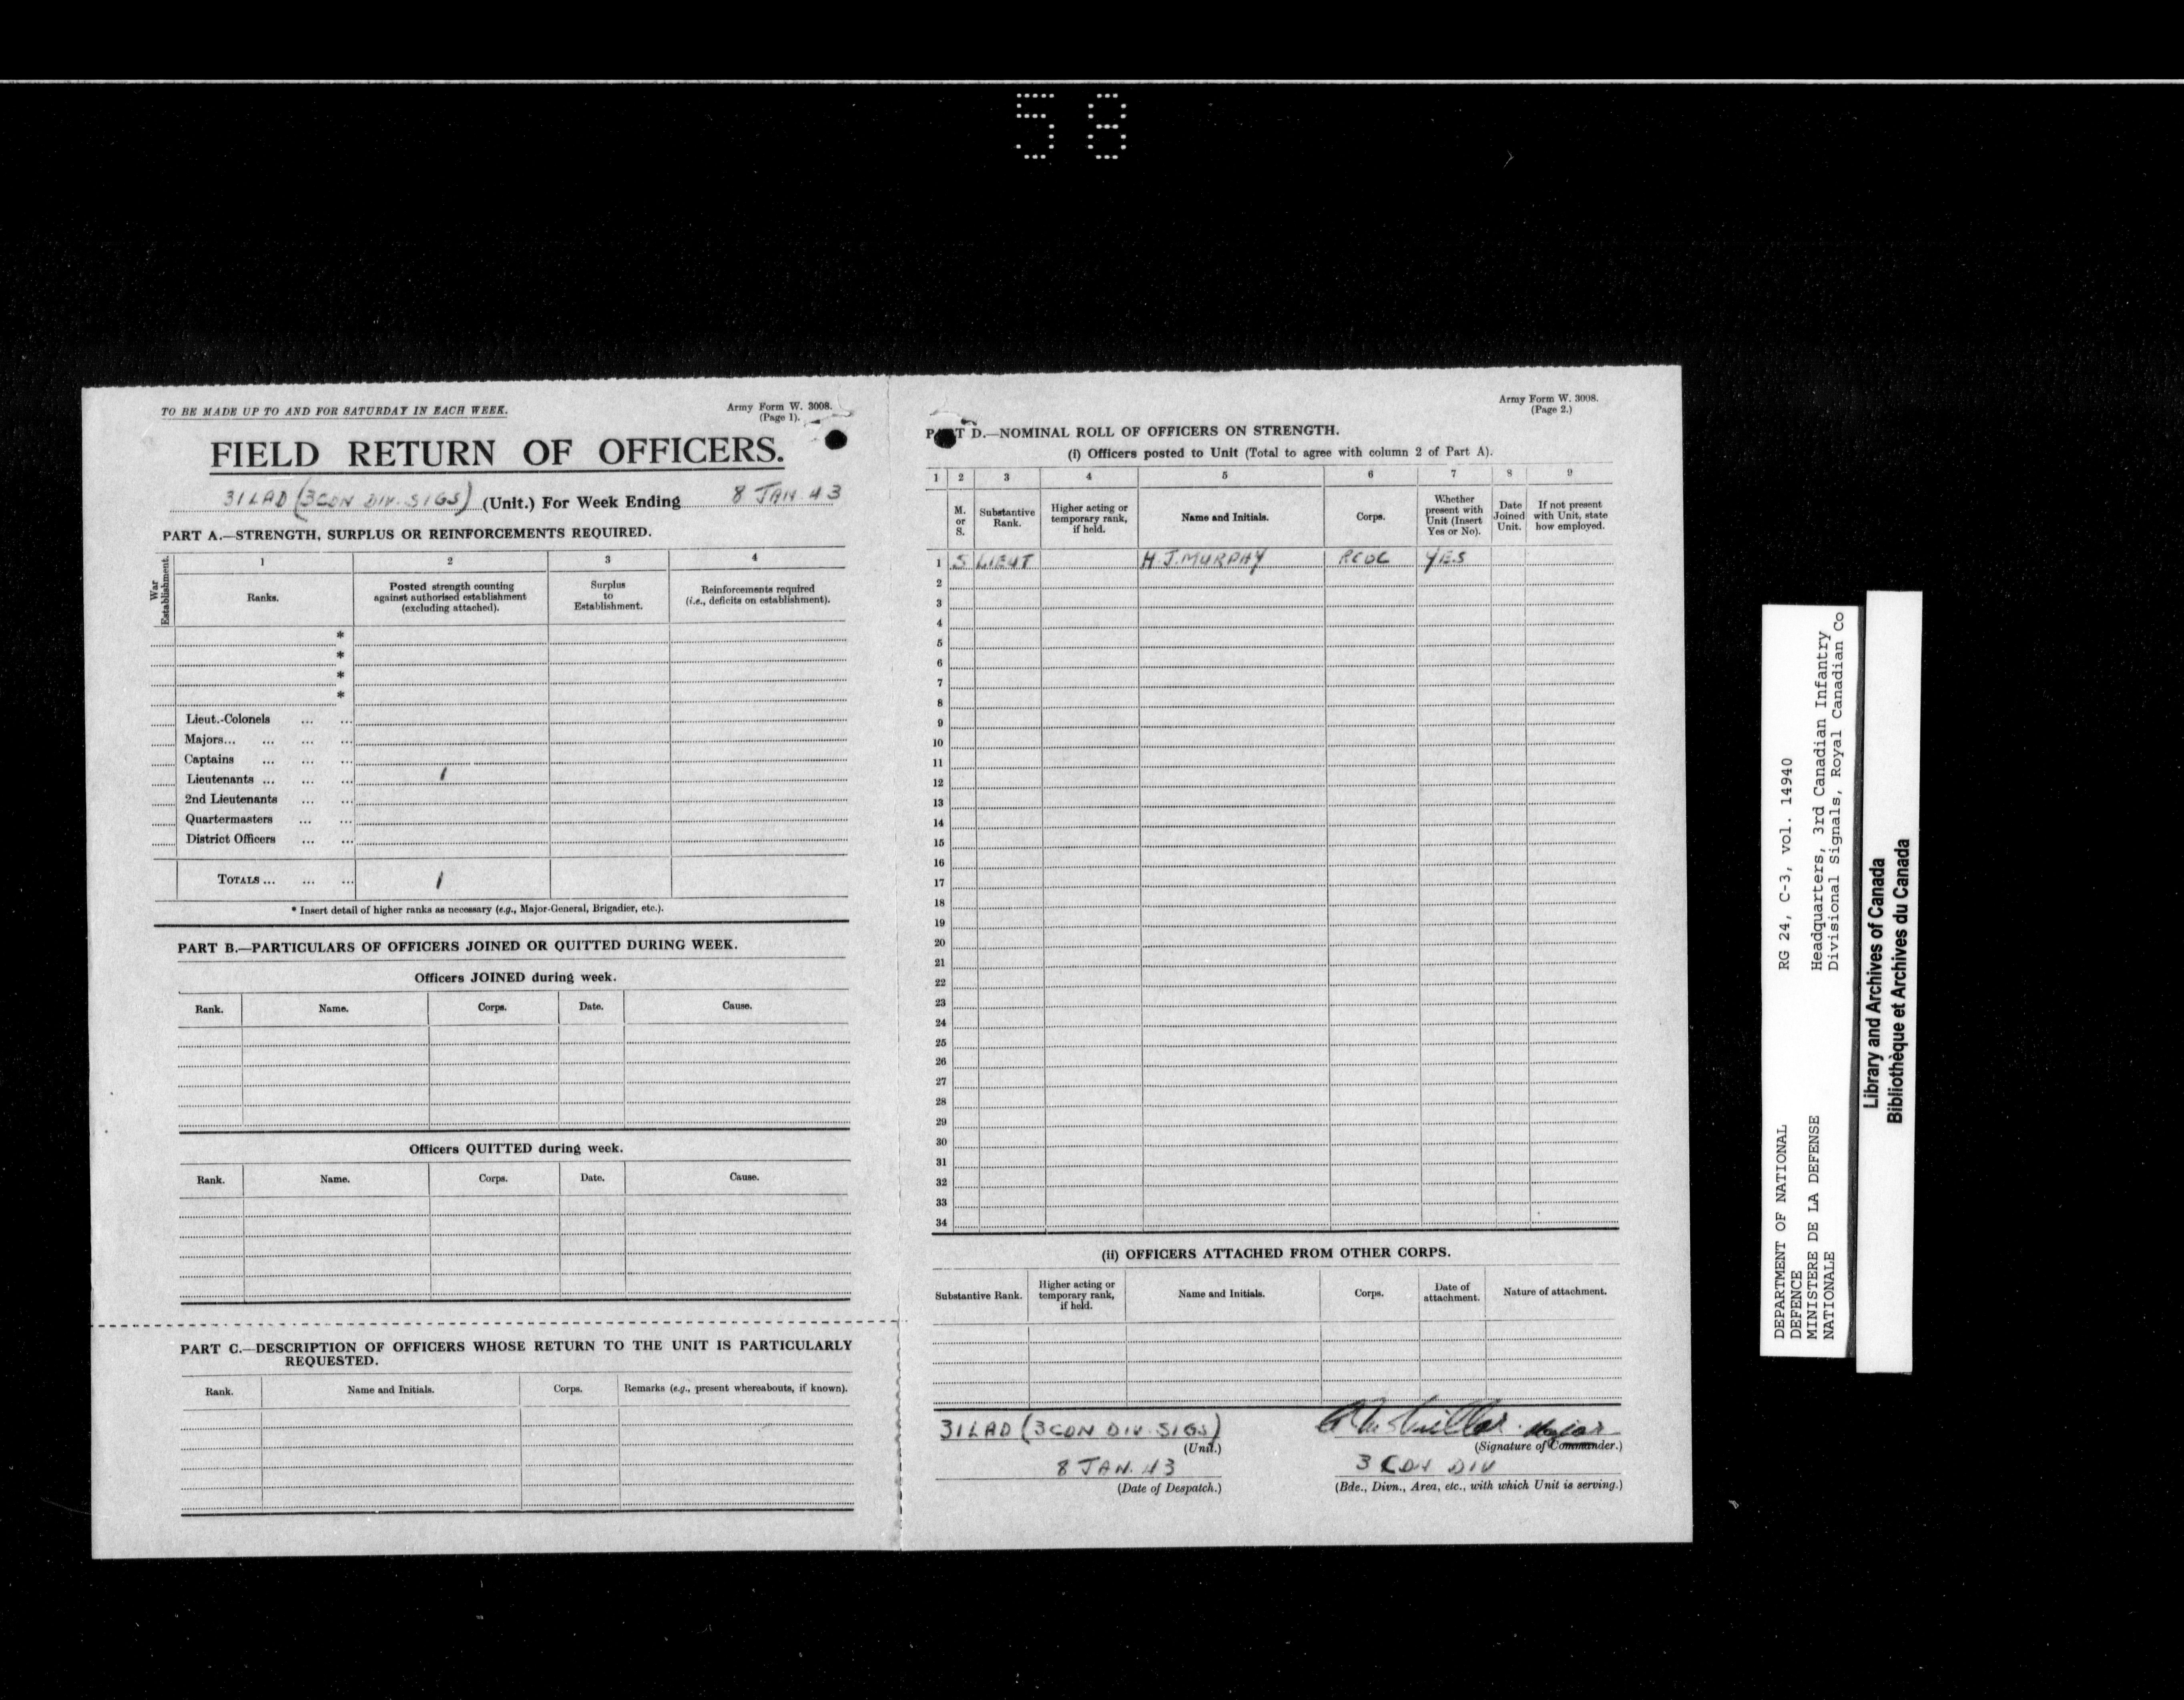 58
TO BE MADE UP TO AND FOR SATURDAY IN EACH WEEK.
Army Form W. 3008.
(Page 1).
FIELD RETURN OF OFFICERS.
31 LAD (3 CDN DIV. SIGS) (Unit.) For Week Ending 8 JAN. 43
PART A.—STRENGTH, SURPLUS OR REINFORCEMENTS REQUIRED.
War Establishment.
1 2 3 4
Ranks.
Posted strength counting against authorised establishment (excluding attached).
Surplus to Establishment.
Reinforcements required (i.e., deficits on establishment).
*
*
*
*
Lieut.-Colonels ... ...
Majors... ... ... ...
Captains ... ... ...
Lieutenants ... ... ... 1
2nd Lieutenants ... ...
Quartermasters ... ...
District Officers ... ...
TOTALS ... ... ... 1
* Insert detail of higher ranks as necessary (e.g., Major-General, Brigadier, etc.).
PART B.—PARTICULARS OF OFFICERS JOINED OR QUITTED DURING WEEK.
Officers JOINED during week.
Rank. Name. Corps. Date. Cause.
Officers QUITTED during week.
Rank. Name. Corps. Date. Cause.
PART C.—DESCRIPTION OF OFFICERS WHOSE RETURN TO THE UNIT IS PARTICULARLY
REQUESTED.
Rank. Name and Initials. Corps. Remarks (e.g., present whereabouts, if known).
Army Form W. 3008.
(Page 2.)
PART D.—NOMINAL ROLL OF OFFICERS ON STRENGTH.
(i) Officers posted to Unit (Total to agree with column 2 of Part A).
1 2 3 4 5 6 7 8 9
M. or S.
Substantive Rank.
Higher acting or temporary rank, if held.
Name and Initials.
Corps.
Whether present with Unit (Insert Yes or No).
Date Joined Unit.
If not present with Unit, state how employed.
1 S LIEUT H J. MURPHY RCOC YES
2
3
4
5
6
7
8
9
10
11
12
13
14
15
16
17
18
19
20
21
22
23
24
25
26
27
28
29
30
31
32
33
34
(ii) OFFICERS ATTACHED FROM OTHER CORPS.
Substantive Rank.
Higher acting or temporary rank, if held.
Name and Initials.
Corps.
Date of attachment.
Nature of attachment.
31 LAD (3 CDN DIV. SIGS)
(Unit.)
8 JAN. 43
(Date of Despatch.)
Major
(Signature of Commander.)
3 CDN DIV
(Bde., Divn., Area, etc., with which Unit is serving.)
DEPARTMENT OF NATIONAL
DEFENCE
MINISTERE DE LA DEFENSE
NATIONALE
RG 24, C-3, vol. 14940
Headquarters, 3rd Canadian Infantry
Divisional Signals, Royal Canadian Co
Library and Archives of Canada
Bibliothèque et Archives du Canada